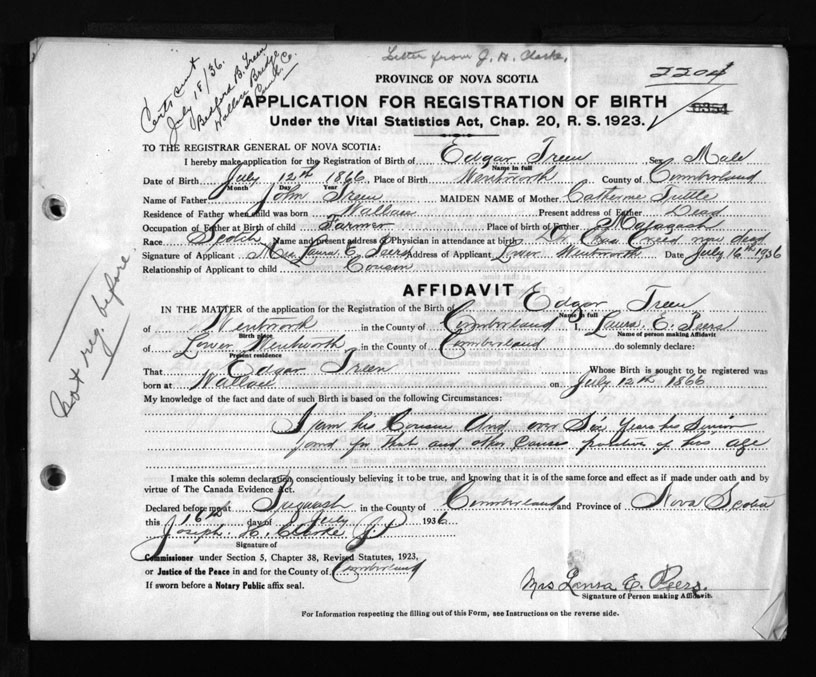 Letter from J. H. Clarke.
Certs sent
July 18/36.
Bedford B. Treen
Wallace Bridge
Cumb. Co.
PROVINCE OF NOVA SCOTIA
2204
APPLICATION FOR REGISTRATION OF BIRTH
6354
Under the Vital Statistics Act, Chap. 20, R. S. 1923.
TO THE REGISTRAR GENERAL OF NOVA SCOTIA:
I hereby make application for the Registration of Birth of Edgar Treen Sex Male
Name in full
Date of Birth July 12th 1866 Place of Birth Wentworth County of Cumberland
Month Day Year
Name of Father John Treen MAIDEN NAME of Mother Catherine Tuttle
Residence of Father when child was born Wallace Present address of Father Dead
Occupation of Father at Birth of child Farmer Place of birth of Father Malagash
Race Scotch Name and present address of Physician in attendance at birth Dr. Creed now dead
Signature of Applicant Mrs. Laura E. Peers Address of Applicant Lower Wentworth Date July 16th 1936
Relationship of Applicant to child Cousin
AFFIDAVIT
IN THE MATTER of the application for the Registration of the Birth of Edgar Treen
Name in full
of Wentworth in the County of Cumberland I, Laura E. Peers
Birth place Name of person making Affidavit
of Lower Wentworth in the County of Cumberland do solemnly declare:
Present residence
That Edgar Treen Whose Birth is sought to be registered was
born at Wallace on July 12th 1866
My knowledge of the fact and date of such Birth is based on the following Circumstances:
I am his Cousin And over Six Years his Senior
and for that and other Causes positive of his age
I make this solemn declaration, conscientiously believing it to be true, and knowing that it is of the same force and effect as if made under oath and by
virtue of The Canada Evidence Act.
Declared before me at Pugwash in the County of Cumberland and Province of Nova Scotia
this 16th day of July 1936
Joseph H. Clarke J.P.
Signature of
Commissioner under Section 5, Chapter 38, Revised Statutes, 1923,
or Justice of the Peace in and for the County of Cumberland
If sworn before a Notary Public affix seal.
Mrs Laura E. Peers.
Signature of Person making Affidavit.
For Information respecting the filling out of this Form, see Instructions on the reverse side.
Not reg. before.